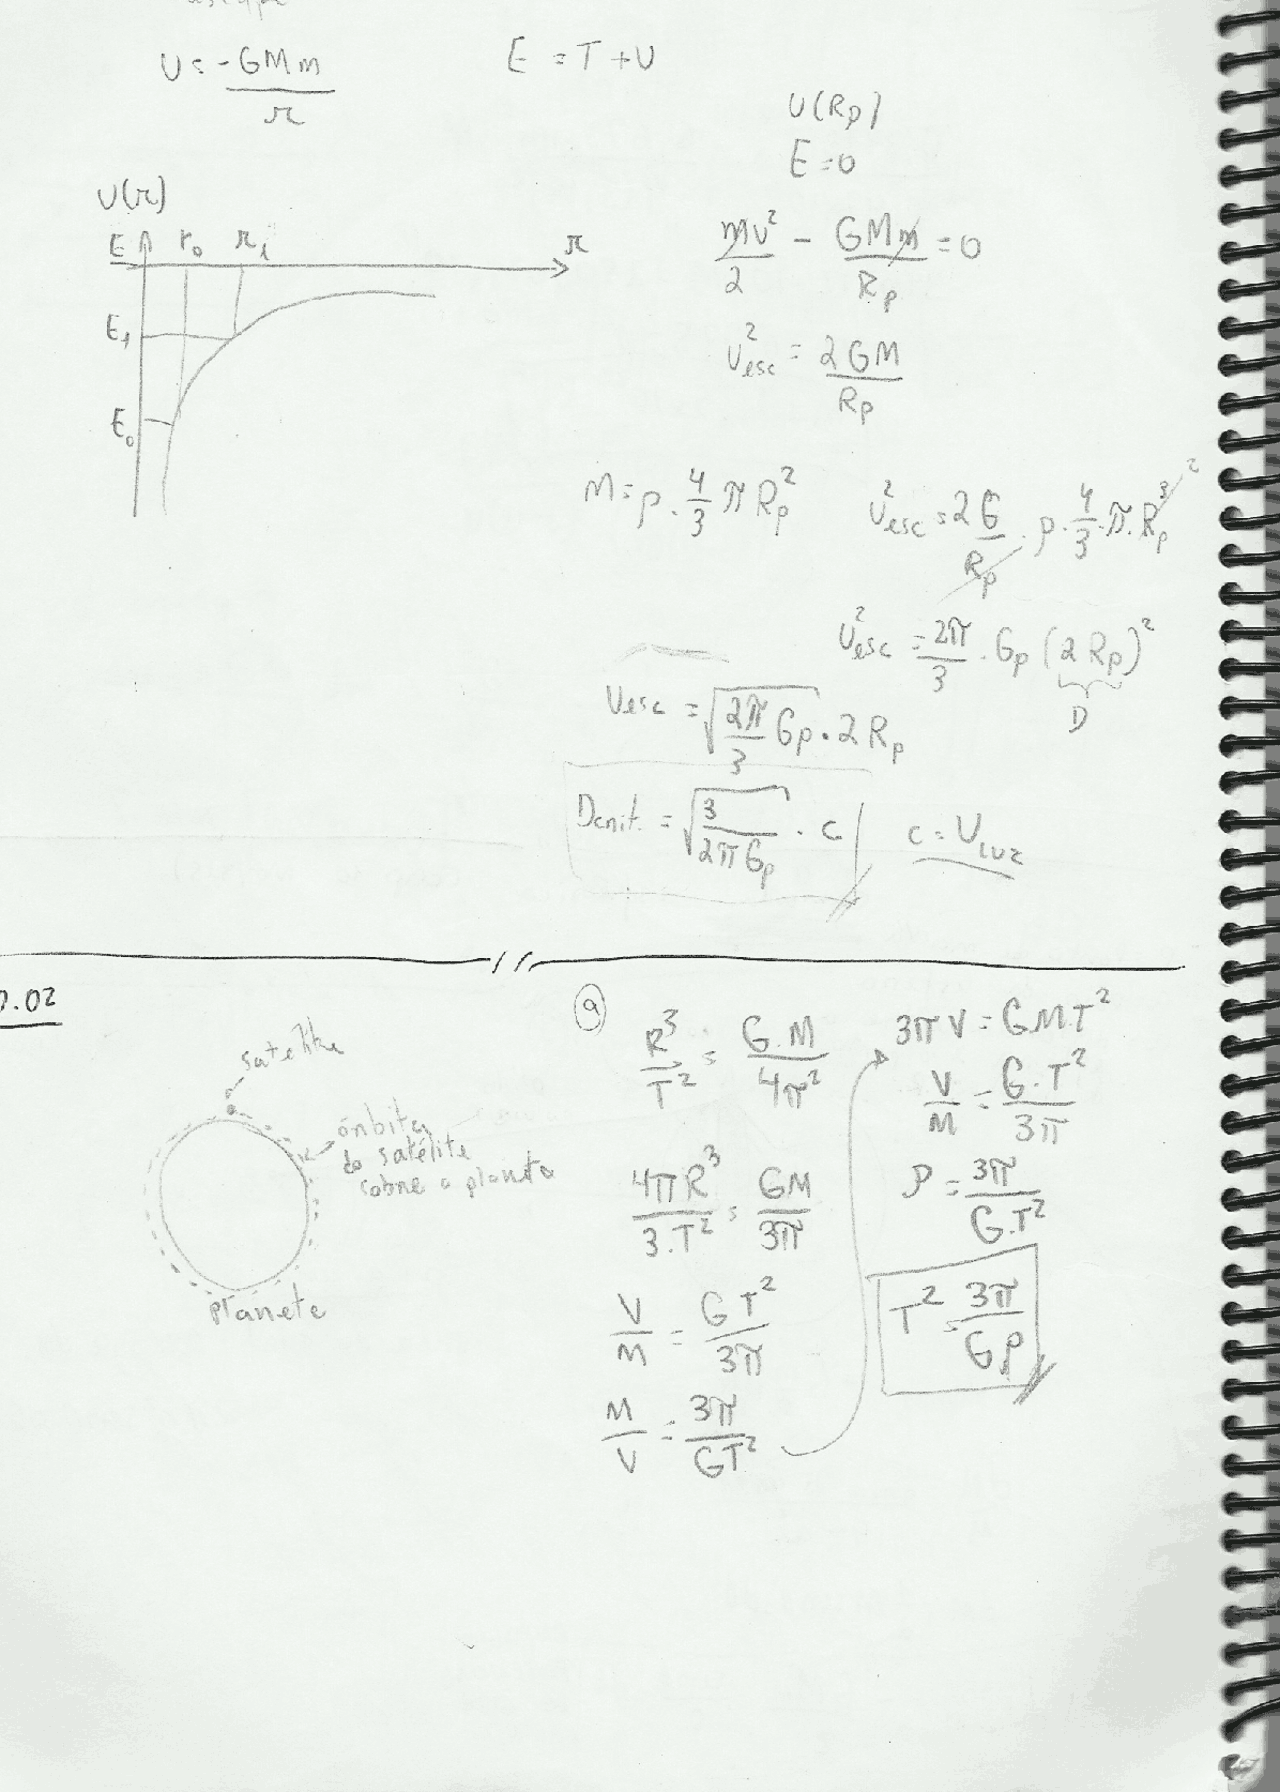 U = -GMm/r
E = T + U
U(Rp)
E = 0
U(r)
E r₀ r₁ r
E₁
E₀
mv²/2 - GMm/Rp = 0
v²esc = 2GM/Rp
M = ρ · 4/3 π Rp²
v²esc = 2G/Rp · ρ · 4/3 · π · Rp³ ²
v²esc = 2π/3 · Gρ (2Rp)²
D
Vesc = √(2π/3 Gρ) · 2Rp
Dcrit. = √(3/2πGρ) · c
c = VLUZ
.02
satélite
órbita
do satélite
sobre o planeta
planeta
a
R³/T² = G.M/4π²
4πR³/3.T² = GM/3π
V/M = GT²/3π
M/V = 3π/GT²
3πV = GMT²
V/M = G.T²/3π
ρ = 3π/G.T²
T² = 3π/Gρ